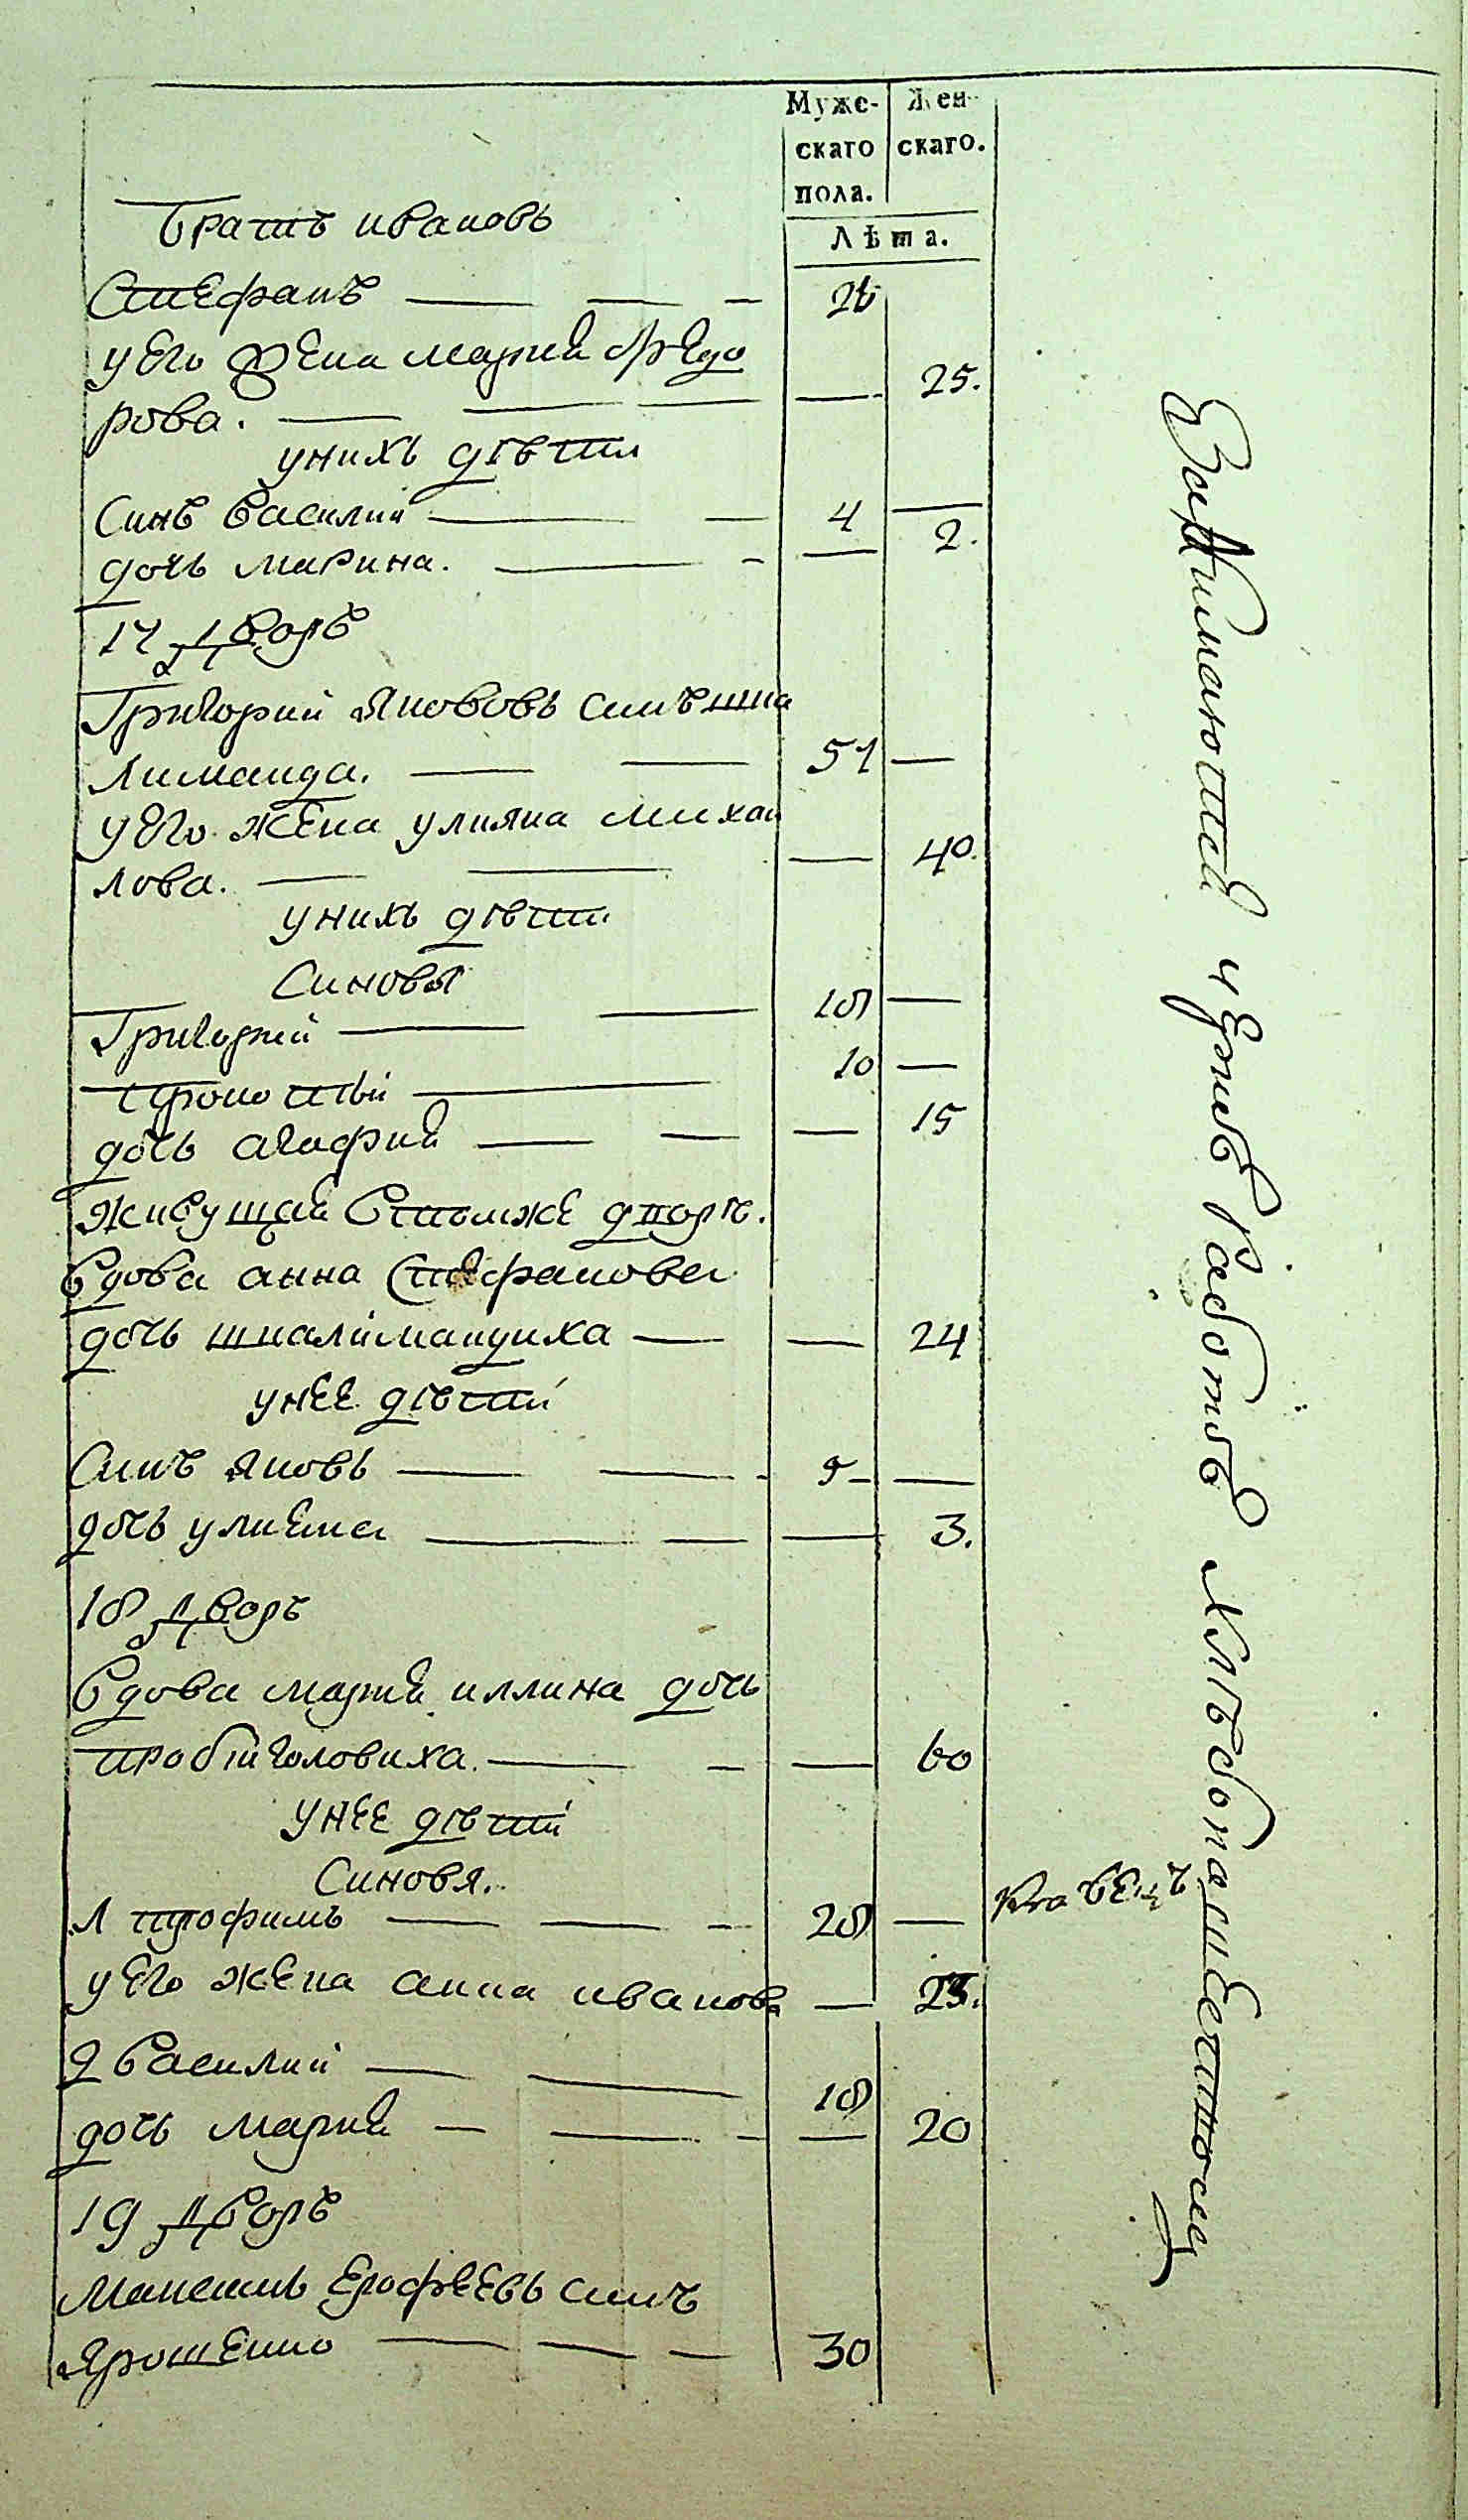 Муже-
скаго
пола.
Жен-
скаго.
Лѣта.
Братъ ивановъ
Стефанъ — — — 26
у его жена мария Федо
рова. — — — — 25.
унихъ дѣти
Синъ василий — — 4 —
дочь марина. — — — 2.
17 Дворъ
Григорий якововъ синъ шка
лиманда. — — 51 —
у его жена улияна михай
лова. — — — 40.
унихъ дѣти
Синовя
Григорий — — 18 —
прокопий — 10 —
дочь агафия — — — 15
живущая втомже дворѣ.
вдова анна Стефанова
дочь шкалимандиха — — 24
унее дѣти
Синъ яковъ — — 5 —
дочь улияна — — — 3.
18 Дворъ
вдова мария иллина дочь
пробийголовиха. — — — 60
унее дѣти
Синовя.
1 трофимъ — — — 28 — кравецъ
у его жена анна иванова — 23.
2 василий — — 18
дочь мария — — — — 20
19 Дворъ
максимъ ерофеевъ синъ
ярошенко — — — 30
Занимаются чернѣ работою хлѣбопашествомъ